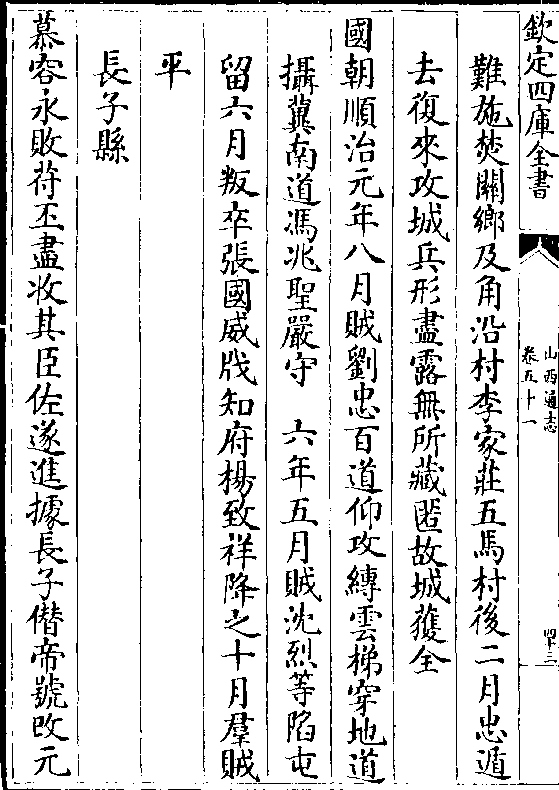 欽定四庫全書
山西通志
卷五十一
四十三
難施焚關鄉及角沿村李家莊五馬村後二月忠遁
去復來攻城兵形盡露無所藏匿故城獲全
國朝順治元年八月賊劉忠百道仰攻縛雲梯穿地道
攝冀南道馮兆聖嚴守　六年五月賊沈烈等陷屯
留六月叛卒張國威戕知府楊致祥降之十月羣賊
平
長子縣
慕容永敗苻丕盡收其臣佐遂進據長子僭帝號改元